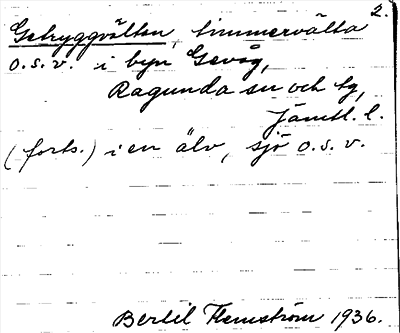 2.
Getryggvältan, timmervälta
o.s.v. i byn Gevåg,
Ragunda sn och tg,
Jämtl. l.
(forts.) i en älv, sjö o.s.v.
Bertil Flemström 1936.